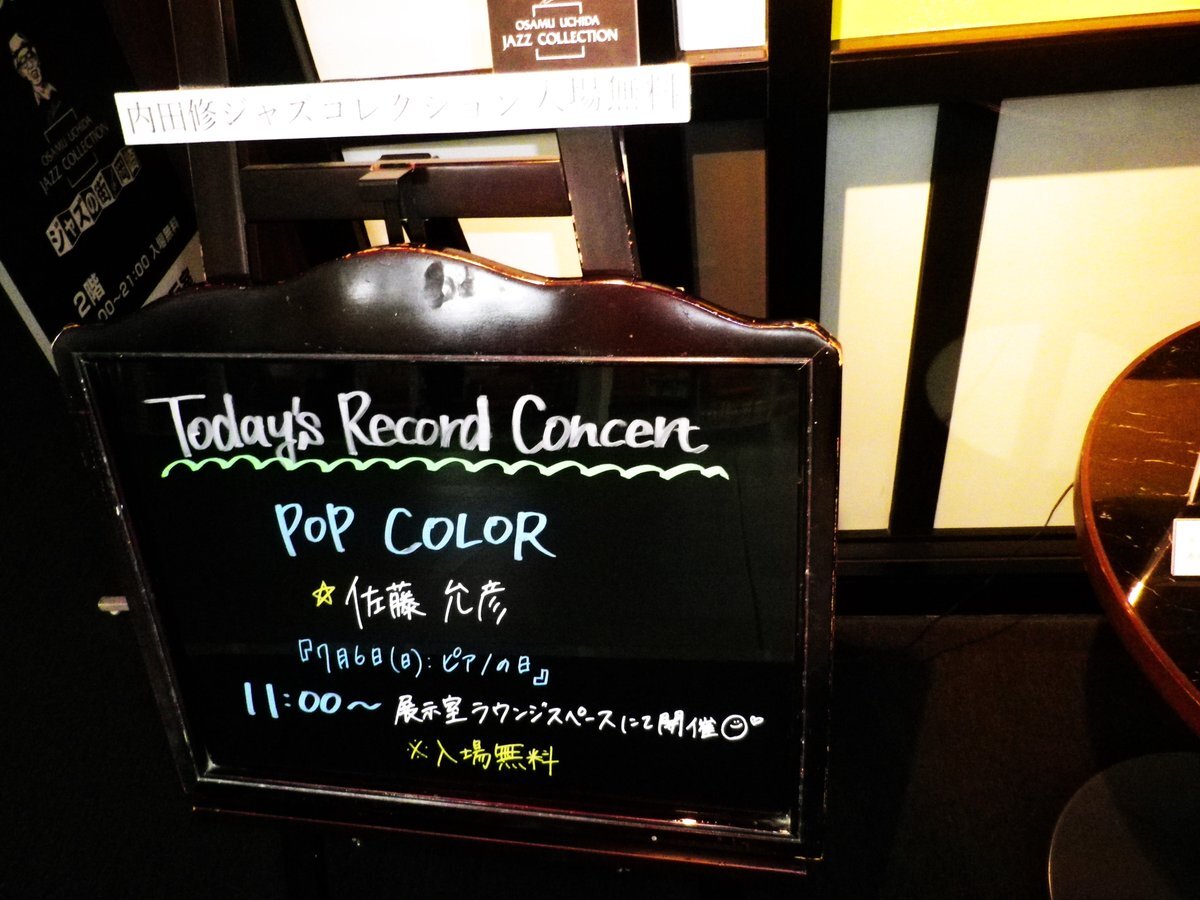 OSAMU UCHIDA
JAZZ COLLECTION
内田修ジャズコレクション 入場無料
OSAMU UCHIDA
JAZZ COLLECTION
ジャズの街
2階
00~21:00 入場無料
Today's Record Concert
POP COLOR
☆佐藤 允彦
『7月6日(日):ピアノの日』
11:00~ 展示室ラウンジスペースにて開催
※入場無料